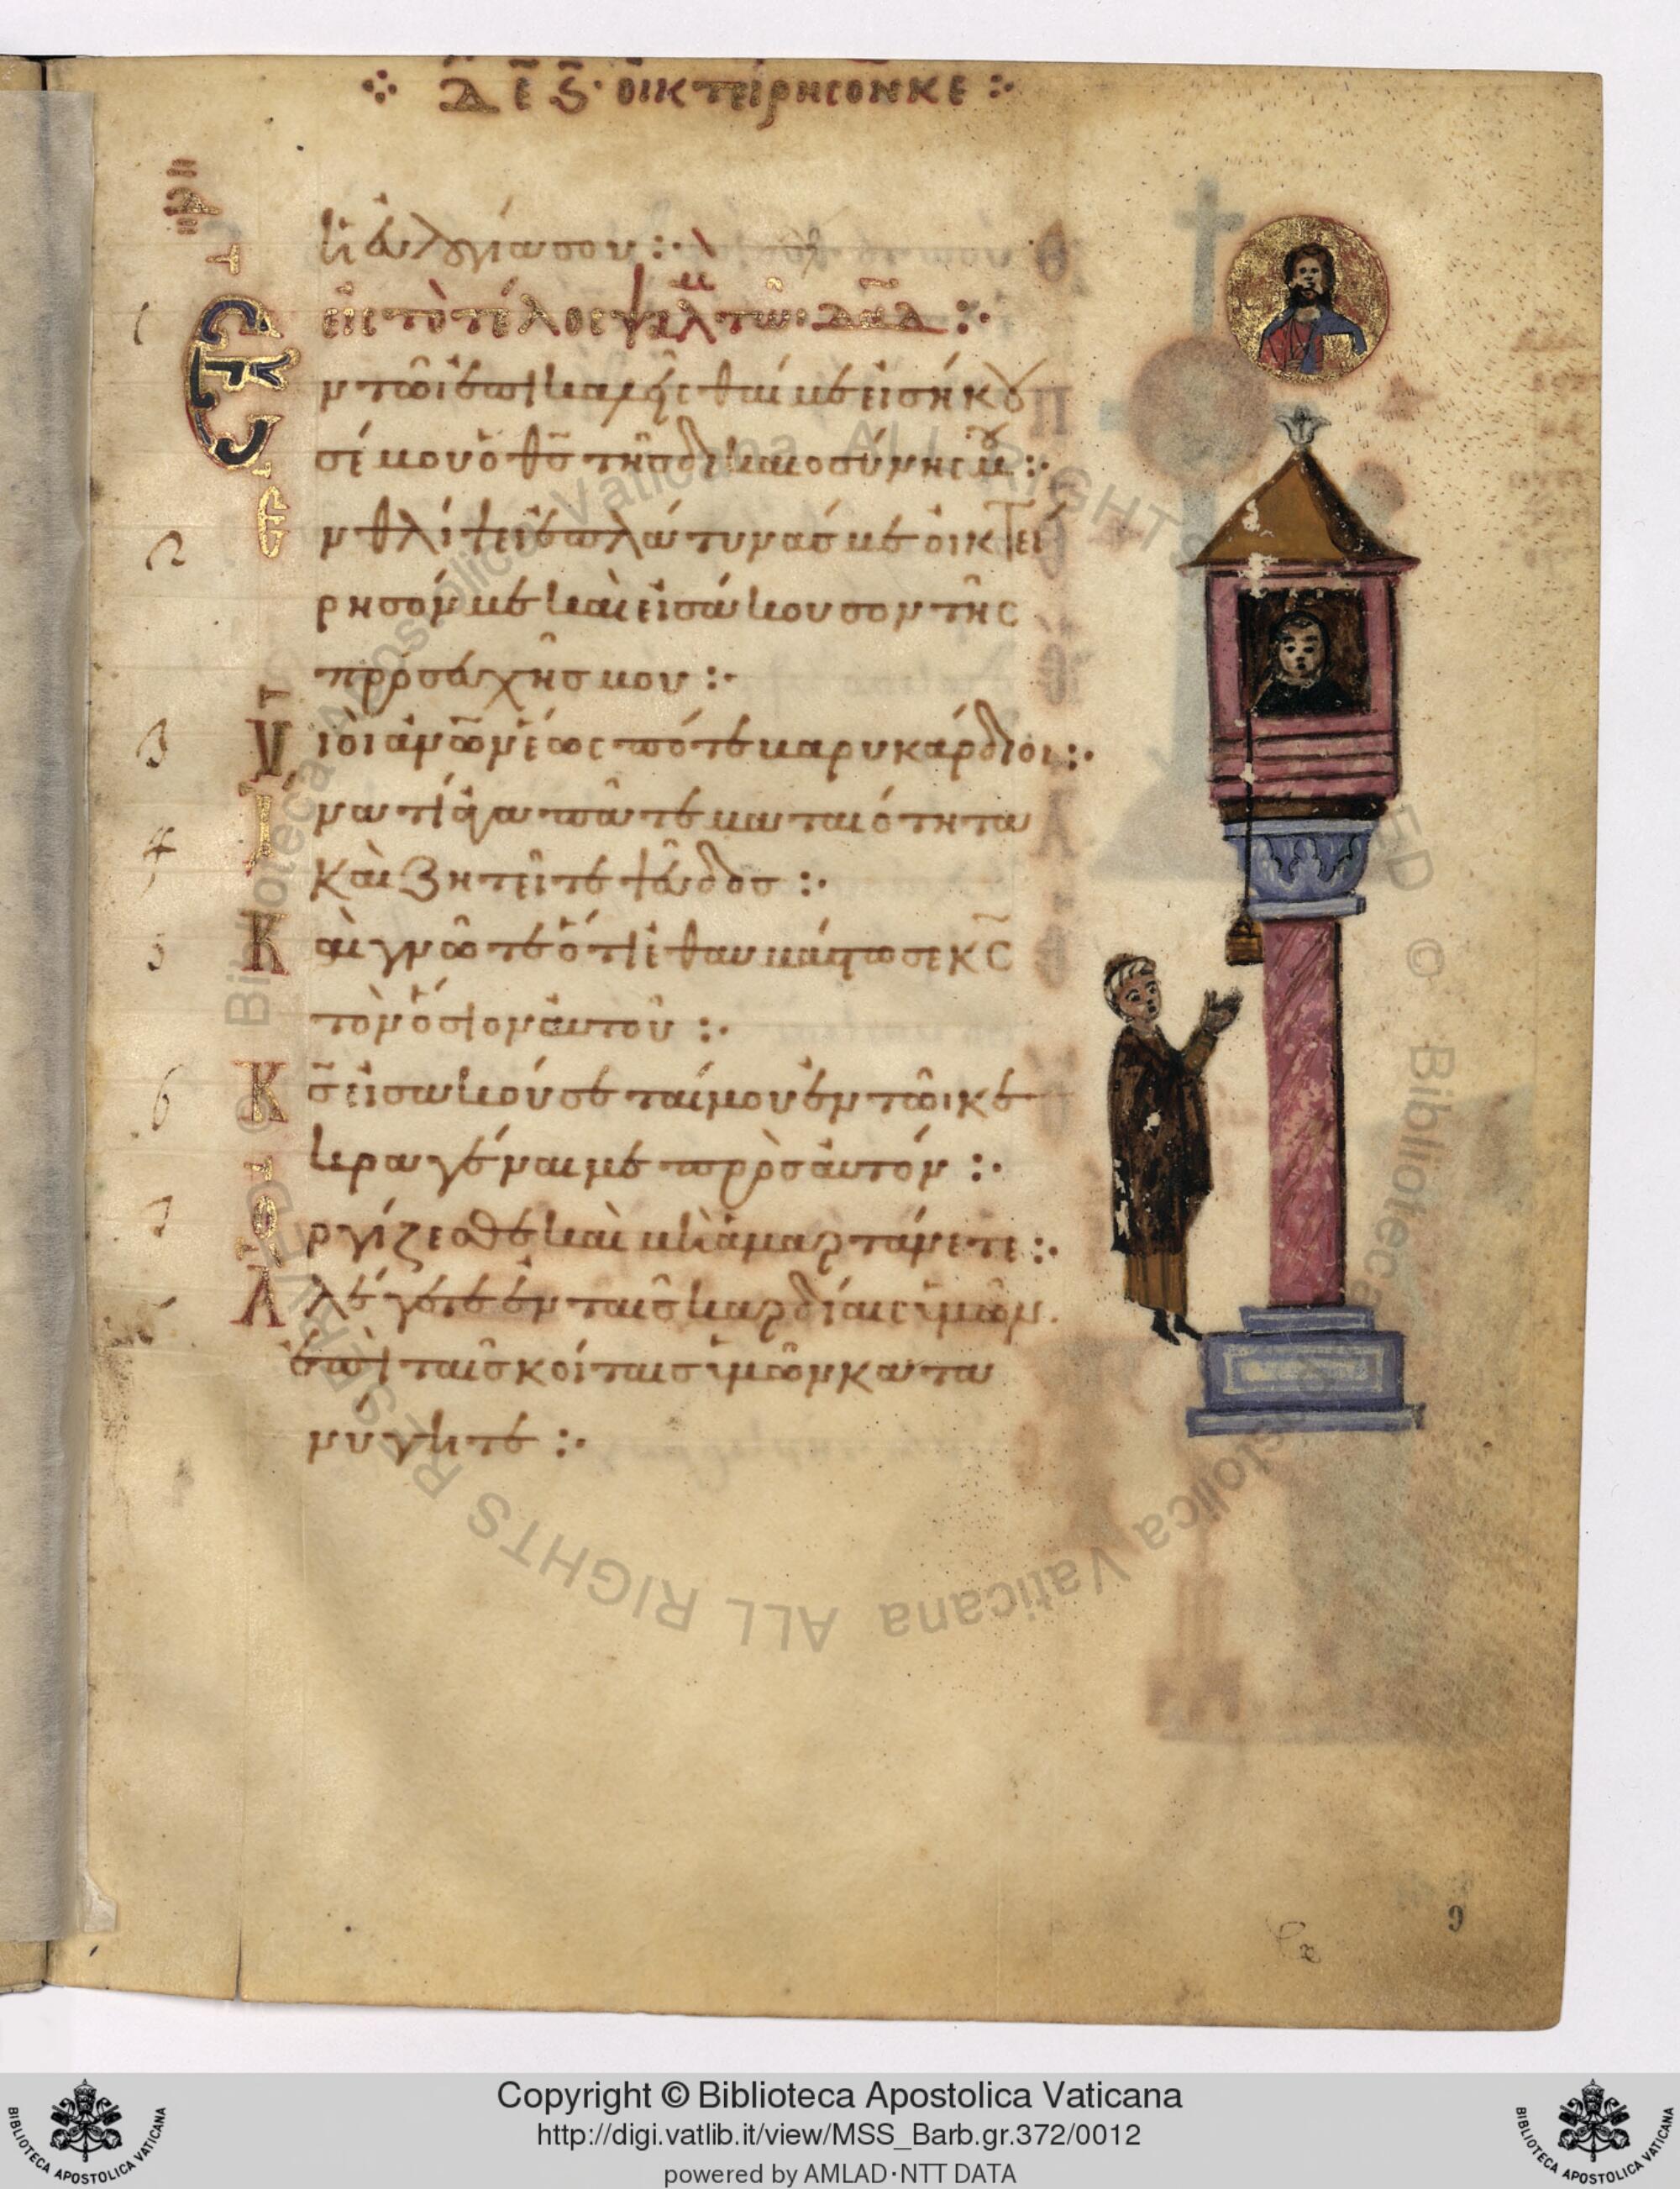 ⁘ Δ ε ς · οἰκτείρησόν κε :·
ἡ εὐλογία σου :·
εἰς τὸ τέλος ψαλμ τῶι δαδ :·
1 Εν τῶ ἐπικαλεῖσθαί με εἰσήκου
σέ μου ὁ θς τῆς δικαιοσύνης μου :·
2 Εν θλίψει ἐπλάτυνάς με οἰκτεί
ρησόν με καὶ εἰσάκουσον τῆς
προσευχῆς μου :·
3 Υἱοὶ ἀνῶν ἕως πότε βαρυκάρδιοι :·
4 Ἵνα τί ἀγαπᾶτε ματαιότητα
καὶ ζητεῖτε ψεῦδος :·
5 Καὶ γνῶτε ὅτι ἐθαυμάστωσε κς
τὸν ὅσιον αὐτοῦ :·
6 Κς εἰσακούσεταί μου ἐν τῶι κε
κραγέναι με πρὸς αὐτόν :·
7 Ὀργίζεσθε καὶ μὴ ἁμαρτάνετε :·
Ἃ λέγετε ἐν ταῖς καρδίαις ὑμῶν
ἐπὶ ταῖς κοίταις ὑμῶν κατα
νύγητε :·
9
Copyright © Biblioteca Apostolica Vaticana
http://digi.vatlib.it/view/MSS_Barb.gr.372/0012
powered by AMLAD·NTT DATA
BIBLIOTECA APOSTOLICA VATICANA
BIBLIOTECA APOSTOLICA VATICANA